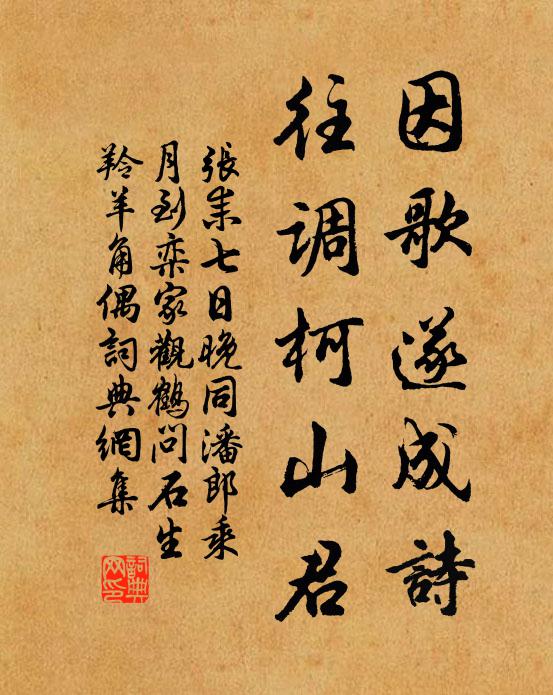 因歌遂成詩
往调柯山君
張耒七日晚同潘郎乘
月到栾家觀鶴问石生
羚羊角偶詞典網集
詞典网印